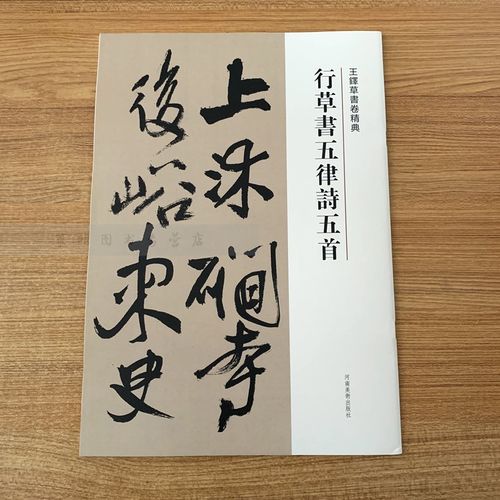 王鐸草書卷精典
行草書五律詩五首
河南美術出版社
上沐礀寺
後峪柬史
图书专营店